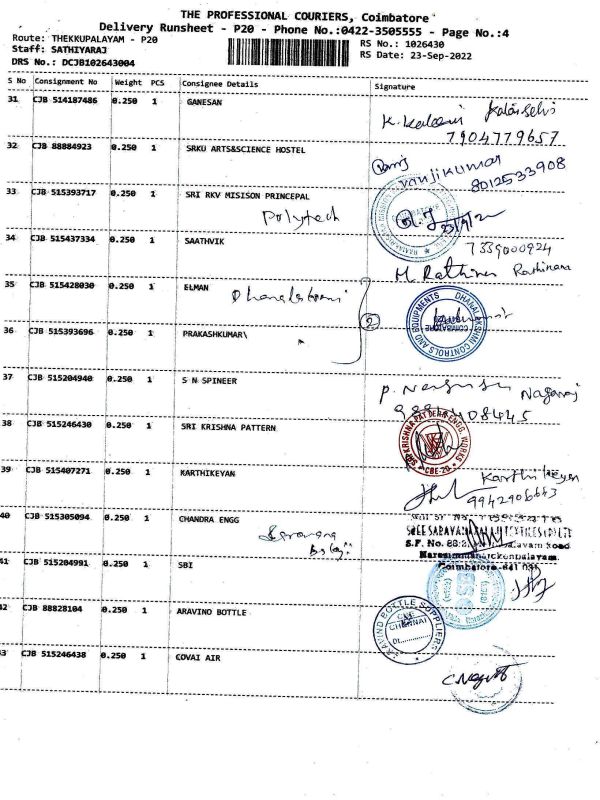 THE PROFESSIONAL COURIERS, Coimbatore
Delivery Runsheet - P20 - Phone No.:0422-3505555 - Page No.:4
Route: THEKKUPALAYAM - P20
Staff: SATHIYARAJ
DRS No.: DCJB102643004
RS No.: 1026430
RS Date: 23-Sep-2022
S No Consignment No Weight PCS Consignee Details Signature
31 CJB 514187486 0.250 1 GANESAN
7904779657
32 CJB 88884923 0.250 1 SRKU ARTS&SCIENCE HOSTEL
8012533908
33 CJB 515393717 0.250 1 SRI RKV MISISON PRINCEPAL
Polytech
34 CJB 515437334 0.250 1 SAATHVIK
7339000924
35 CJB 515428030 0.250 1 ELMAN
DHANALAKSHMI CONTROLS AND EQUIPMENTS
COIMBATORE
2
36 CJB 515393696 0.250 1 PRAKASHKUMAR\
37 CJB 515204940 0.250 1 S N SPINEER
Nagaraj
38 CJB 515246430 0.250 1 SRI KRISHNA PATTERN
SRI KRISHNA PATTERN ENGG WORKS
CBE-20
39 CJB 515407271 0.250 1 KARTHIKEYAN
Karthikeyan
9942906643
40 CJB 515305094 0.250 1 CHANDRA ENGG
Saravana
S.F. No.
Coimbatore-641 031
41 CJB 515204991 0.250 1 SBI
42 CJB 88828104 0.250 1 ARAVINO BOTTLE
ARAVIND BOTTLE SUPPLIERS
CHENNAI
43 CJB 515246438 0.250 1 COVAI AIR